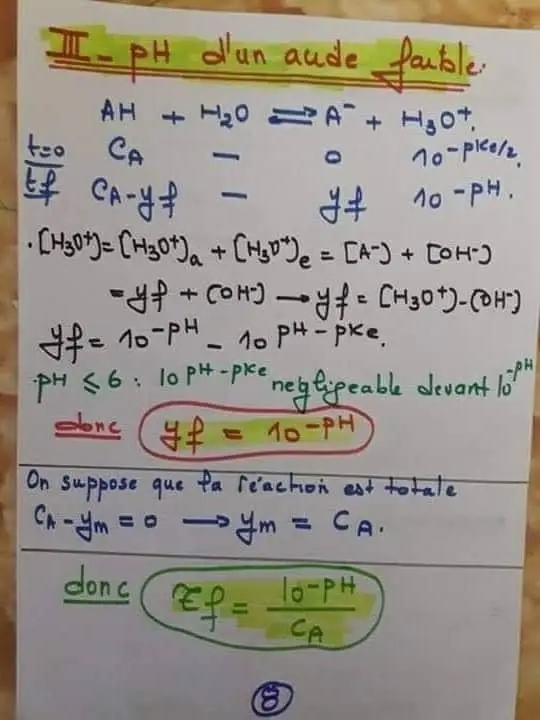 III - pH d'un acide faible.
AH + H₂O ⇌ A⁻ + H₃O⁺.
t=0 CA — 0 10^-pKe/2.
tf CA-yf — yf 10^-pH.
.[H₃O⁺]=[H₃O⁺]a + [H₃O⁺]e = [A⁻] + [OH⁻]
= yf + [OH⁻] → yf = [H₃O⁺]-[OH⁻]
yf = 10^-pH - 10^pH-pKe.
.pH ⩽ 6 : 10^pH-pKe négligeable devant 10^-pH
donc yf = 10^-pH
On suppose que la réaction est totale
CA-ym = 0 → ym = CA.
donc τf = 10^-pH / CA
8